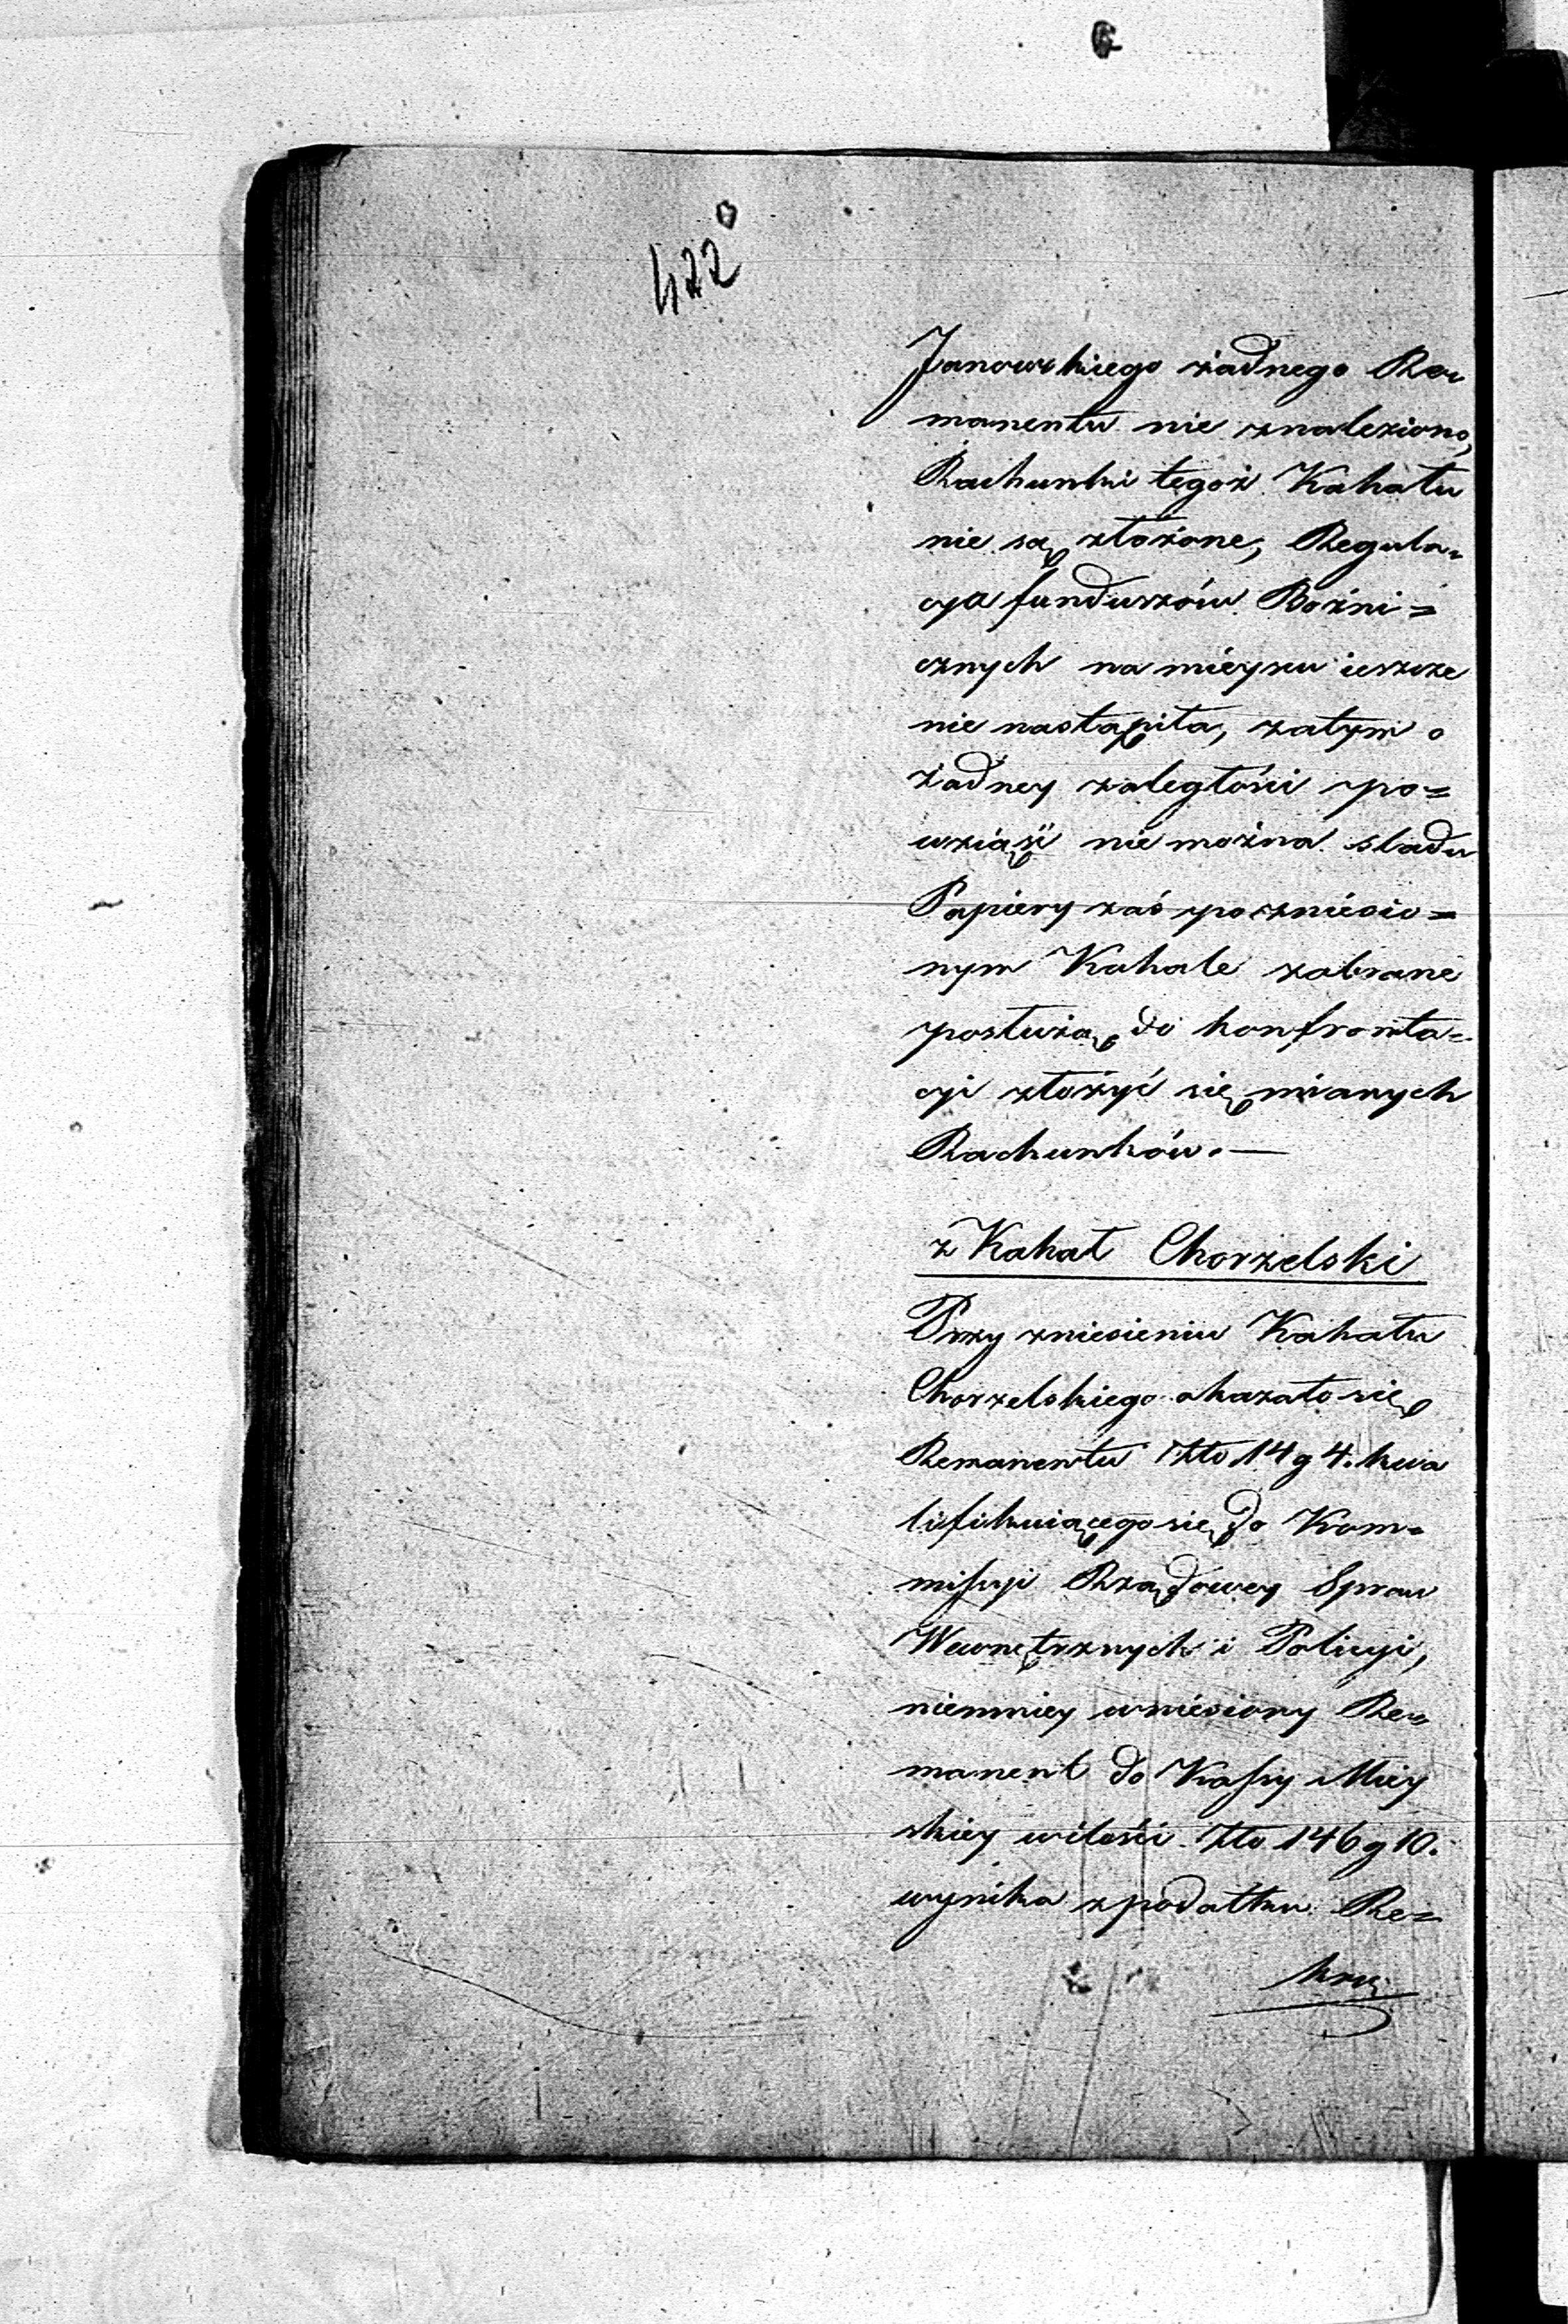 422
Janowskiego żadnego Re=
manentu nie znaleziono,
Rachunki tegoż Kahału
nie są złożone, Regula=
cya funduszów Bożni=
cznych na mieyscu ieszcze
nie nastąpiła, zatym o
żadney zaległości po=
wziąść nie można sladu
Papiery zaś po zniesio=
nym Kahale zabrane
posłużą do konfronta=
cji złożyć się mianych
Rachunków.—
z Kahał Chorzelski
Przy zniesieniu Kahału
Chorzelskiego okazało się
Remanentu Złto 14 g 4. kwa
lifikuiącego się do Kom=
missyi Rządowey Spraw
Wewnętrznych i Policyi,
niemniey wniesiony Re=
manent do Kassy Miey
skiey wilości Złto 146 g 10.
wynika z podatku Re=
kru